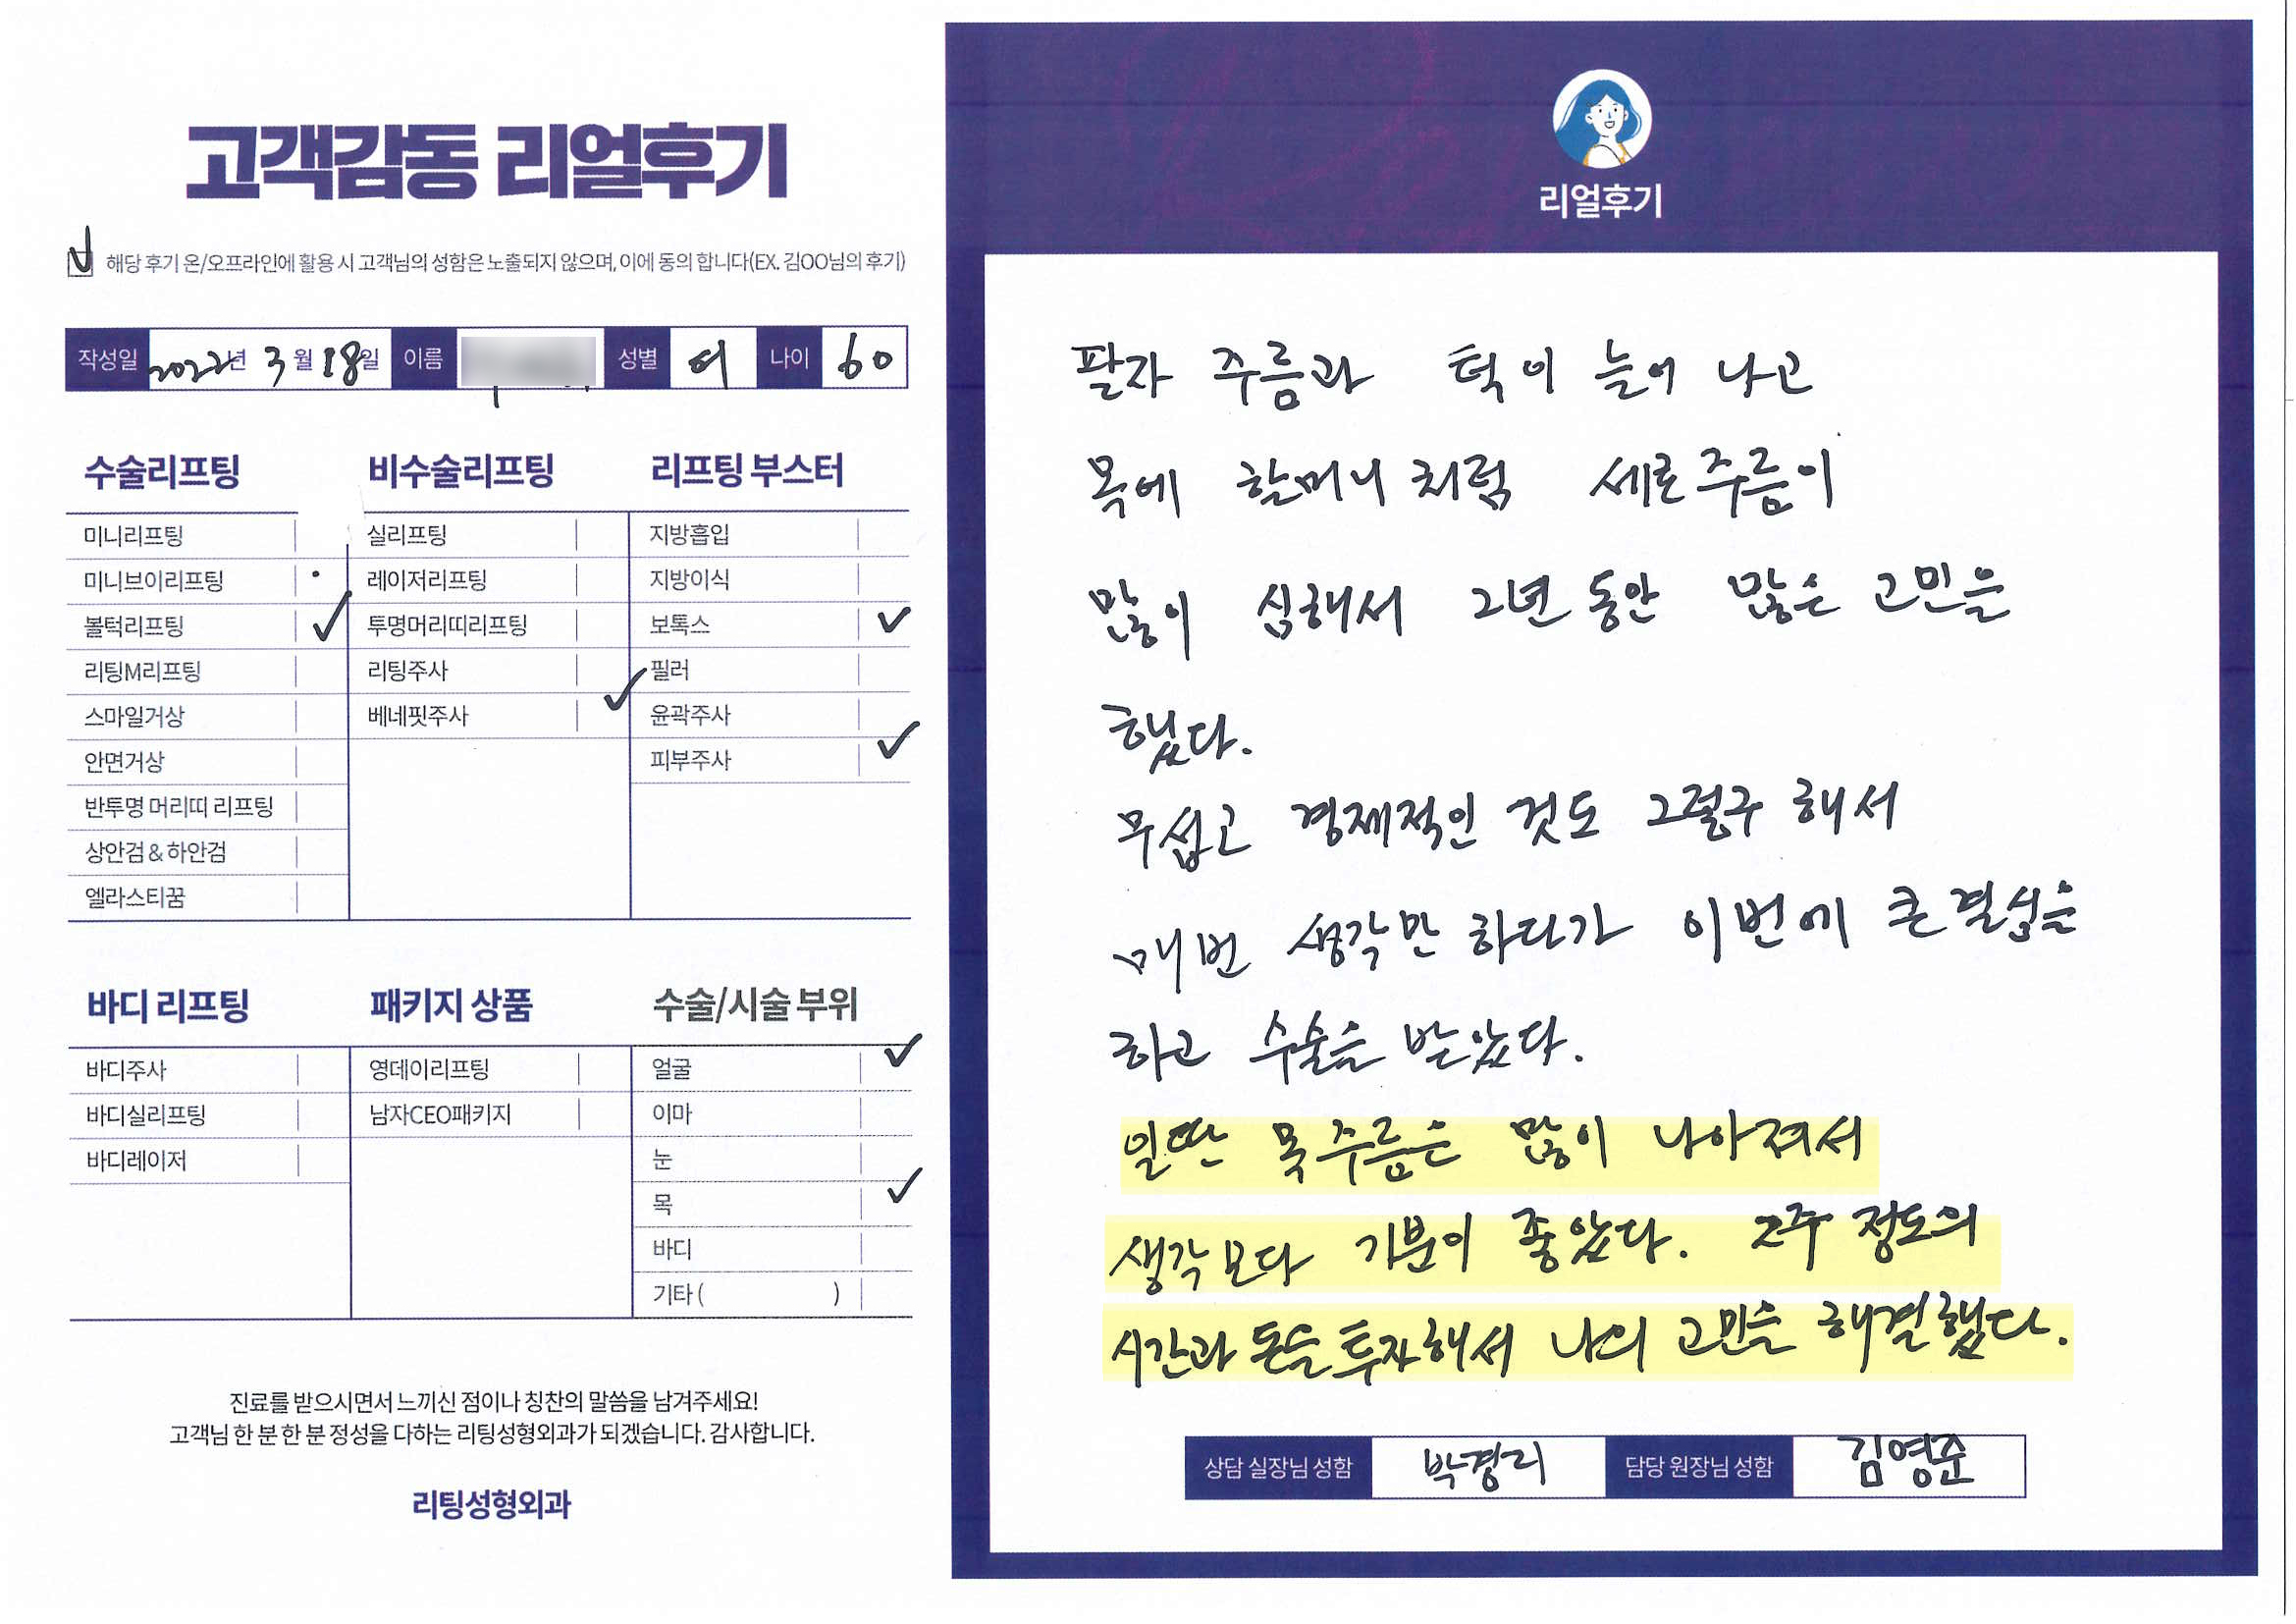 고객감동 리얼후기
해당 후기 온/오프라인에 활용 시 고객님의 성함은 노출되지 않으며, 이에 동의 합니다(EX. 김OO님의 후기)
작성일 2022년 3월 18일 이름 성별 여 나이 60
수술리프팅
미니리프팅
미니브이리프팅
볼턱리프팅
리팅M리프팅
스마일거상
안면거상
반투명 머리띠 리프팅
상안검 & 하안검
엘라스티꿈
비수술리프팅
실리프팅
레이저리프팅
투명머리띠리프팅
리팅주사
베네핏주사
리프팅 부스터
지방흡입
지방이식
보톡스
필러
윤곽주사
피부주사
바디 리프팅
바디주사
바디실리프팅
바디레이저
패키지 상품
영데이리프팅
남자CEO패키지
수술/시술 부위
얼굴
이마
눈
목
바디
기타 ( )
진료를 받으시면서 느끼신 점이나 칭찬의 말씀을 남겨주세요!
고객님 한 분 한 분 정성을 다하는 리팅성형외과가 되겠습니다. 감사합니다.
리팅성형외과
리얼후기
팔자 주름과 턱이 늘어 나고
목에 할머니 처럼 세로주름이
많이 심해서 2년 동안 많은 고민을
했다.
무섭고 경제적인 것도 그렇구 해서
매번 생각만 하다가 이번에 큰 결심을
하고 수술을 받았다.
일딴 목주름은 많이 나아져서
생각보다 기분이 좋았다. 2주 정도의
시간과 돈을 투자해서 나의 고민을 해결했다.
상담 실장님 성함 박경리 담당 원장님 성함 김영준